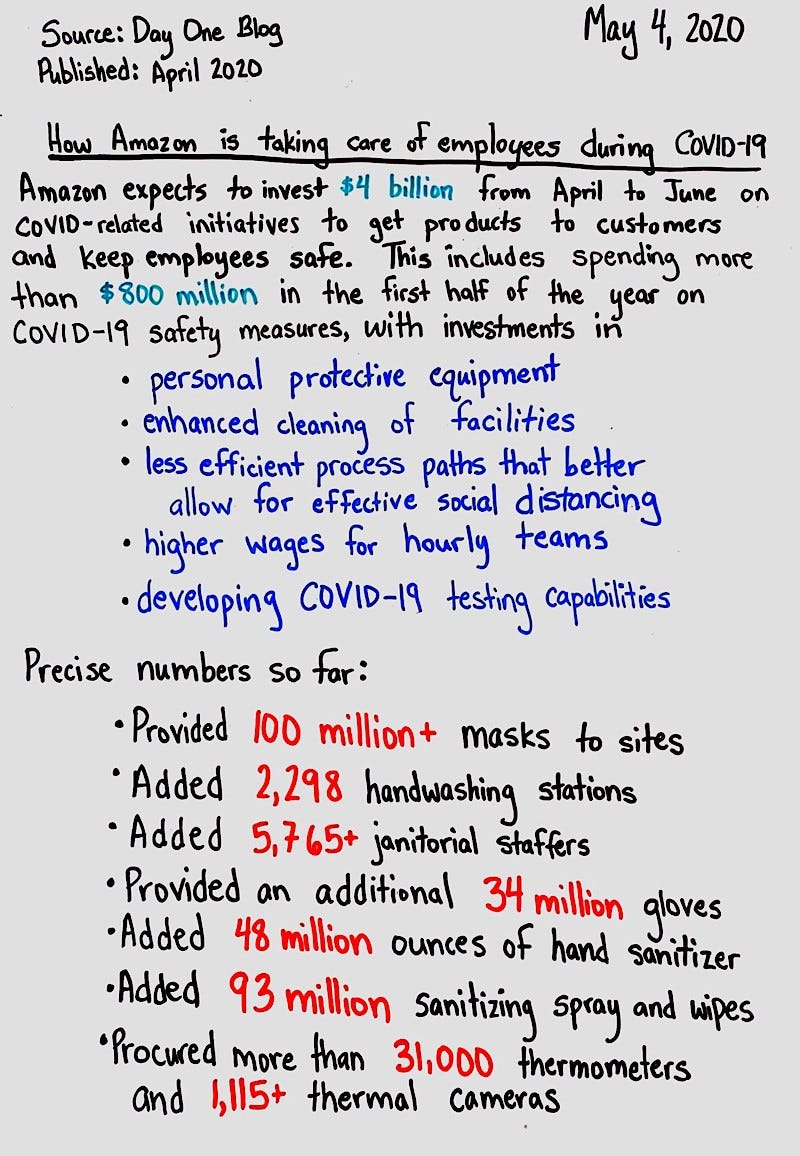 Source: Day One Blog
May 4, 2020
Published: April 2020
How Amazon is taking care of employees during COVID-19
Amazon expects to invest $4 billion from April to June on
COVID-related initiatives to get products to customers
and keep employees safe. This includes spending more
than $800 million in the first half of the year on
COVID-19 safety measures, with investments in
• personal protective equipment
• enhanced cleaning of facilities
• less efficient process paths that better
allow for effective social distancing
• higher wages for hourly teams
• developing COVID-19 testing capabilities
Precise numbers so far:
• Provided 100 million+ masks to sites
• Added 2,298 handwashing stations
• Added 5,765+ janitorial staffers
• Provided an additional 34 million gloves
• Added 48 million ounces of hand sanitizer
• Added 93 million sanitizing spray and wipes
• Procured more than 31,000 thermometers
and 1,115+ thermal cameras